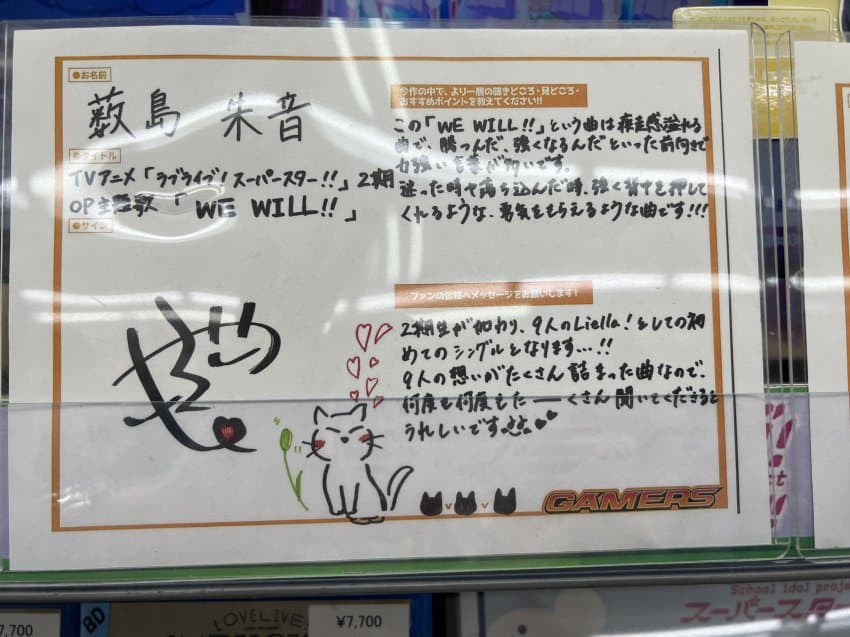 ●お名前
薮島 朱音
●タイトル
TVアニメ「ラブライブ!スーパースター!!」2期
OP主題歌「WE WILL!!」
●サイン
今作の中で、より一層の聴きどころ・見どころ・
おすすめポイントを教えてください!!
この「WE WILL!!」という曲は疾走感溢れる
曲で、勝つんだ、強くなるんだといった前向きで
力強い言葉が多いです。
迷った時や落ち込んだ時、強く背中を押して
くれるような、勇気をもらえるような曲です!!!
ファンの皆様へメッセージをお願いします!
2期生が加わり、9人のLiella!としての初
めてのシングルとなります…!!
9人の想いがたくさん詰まった曲なので、
何度も何度もた――くさん聞いてくださると
うれしいです
GAMERS
BD
LOVELIVE
¥7,700
7,700
School idol proje
スーパースタ